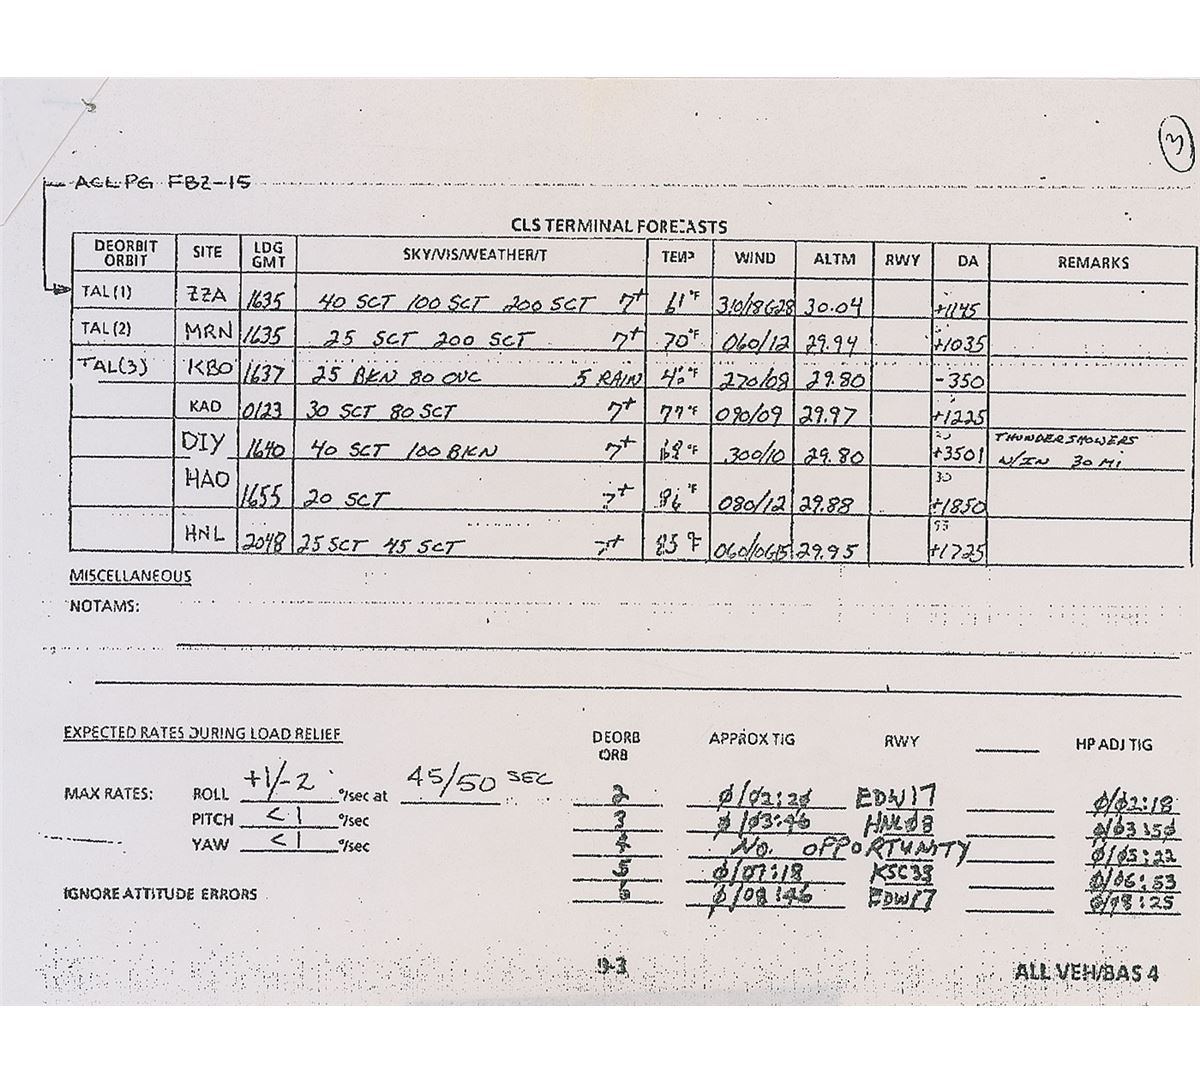 3
ACL PG FB2-15
CLS TERMINAL FORECASTS
DEORBIT ORBIT SITE LDG GMT SKY/VIS/WEATHER/T TEMP WIND ALTM RWY DA REMARKS
TAL (1) ZZA 1635 40 SCT 100 SCT 200 SCT 7+ 61°F 310/18G28 30.04 +1145
TAL (2) MRN 1635 25 SCT 200 SCT 7+ 70°F 060/12 29.94 +1035
TAL (3) KBO 1637 25 BKN 80 OVC 5 RAIN °F 270/08 29.80 -350
KAD 0123 30 SCT 80 SCT 7+ 77°F 090/09 29.97 +1225
DIY 1640 40 SCT 100 BKN 7+ 68°F 300/10 29.80 +3501 THUNDERSHOWERS W/IN 30 MI
HAO 1655 20 SCT 7+ 86°F 080/12 29.88 +1850
HNL 2048 25 SCT 45 SCT 7+ 85°F 060/06G15 29.95 +1725
MISCELLANEOUS
NOTAMS:
EXPECTED RATES DURING LOAD RELIEF
MAX RATES: ROLL +1/-2 °/sec at 45/50 SEC
PITCH <1 °/sec
YAW <1 °/sec
IGNORE ATTITUDE ERRORS
DEORB ORB APPROX TIG RWY HP ADJ TIG
2 0/02:20 EDW17 0/02:18
3 0/03:46 HNL08 0/03:50
4 NO. OPPORTUNITY 0/05:22
5 0/07:18 KSC33 0/06:53
6 0/08:46 EDW17 0/08:25
9-3
ALL VEH/BAS 4